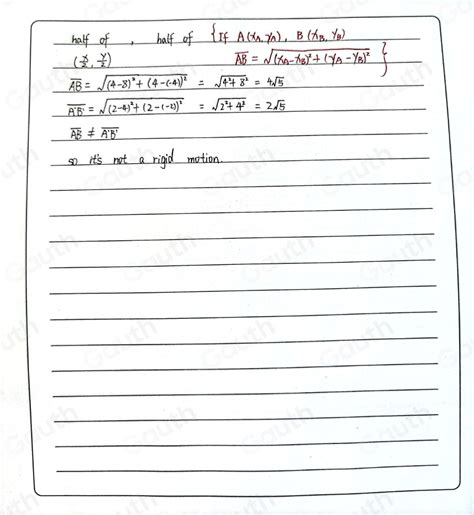 half of , half of {If A(xA, yA), B(xB, yB)
(x/2, y/2) AB = √(xA-xB)²+(yA-yB)² }
AB = √(4-8)²+(4-(-4))² = √4²+8² = 4√5
A'B' = √(2-4)²+(2-(-2))² = √2²+4² = 2√5
AB ≠ A'B'
so it's not a rigid motion.
Gauth